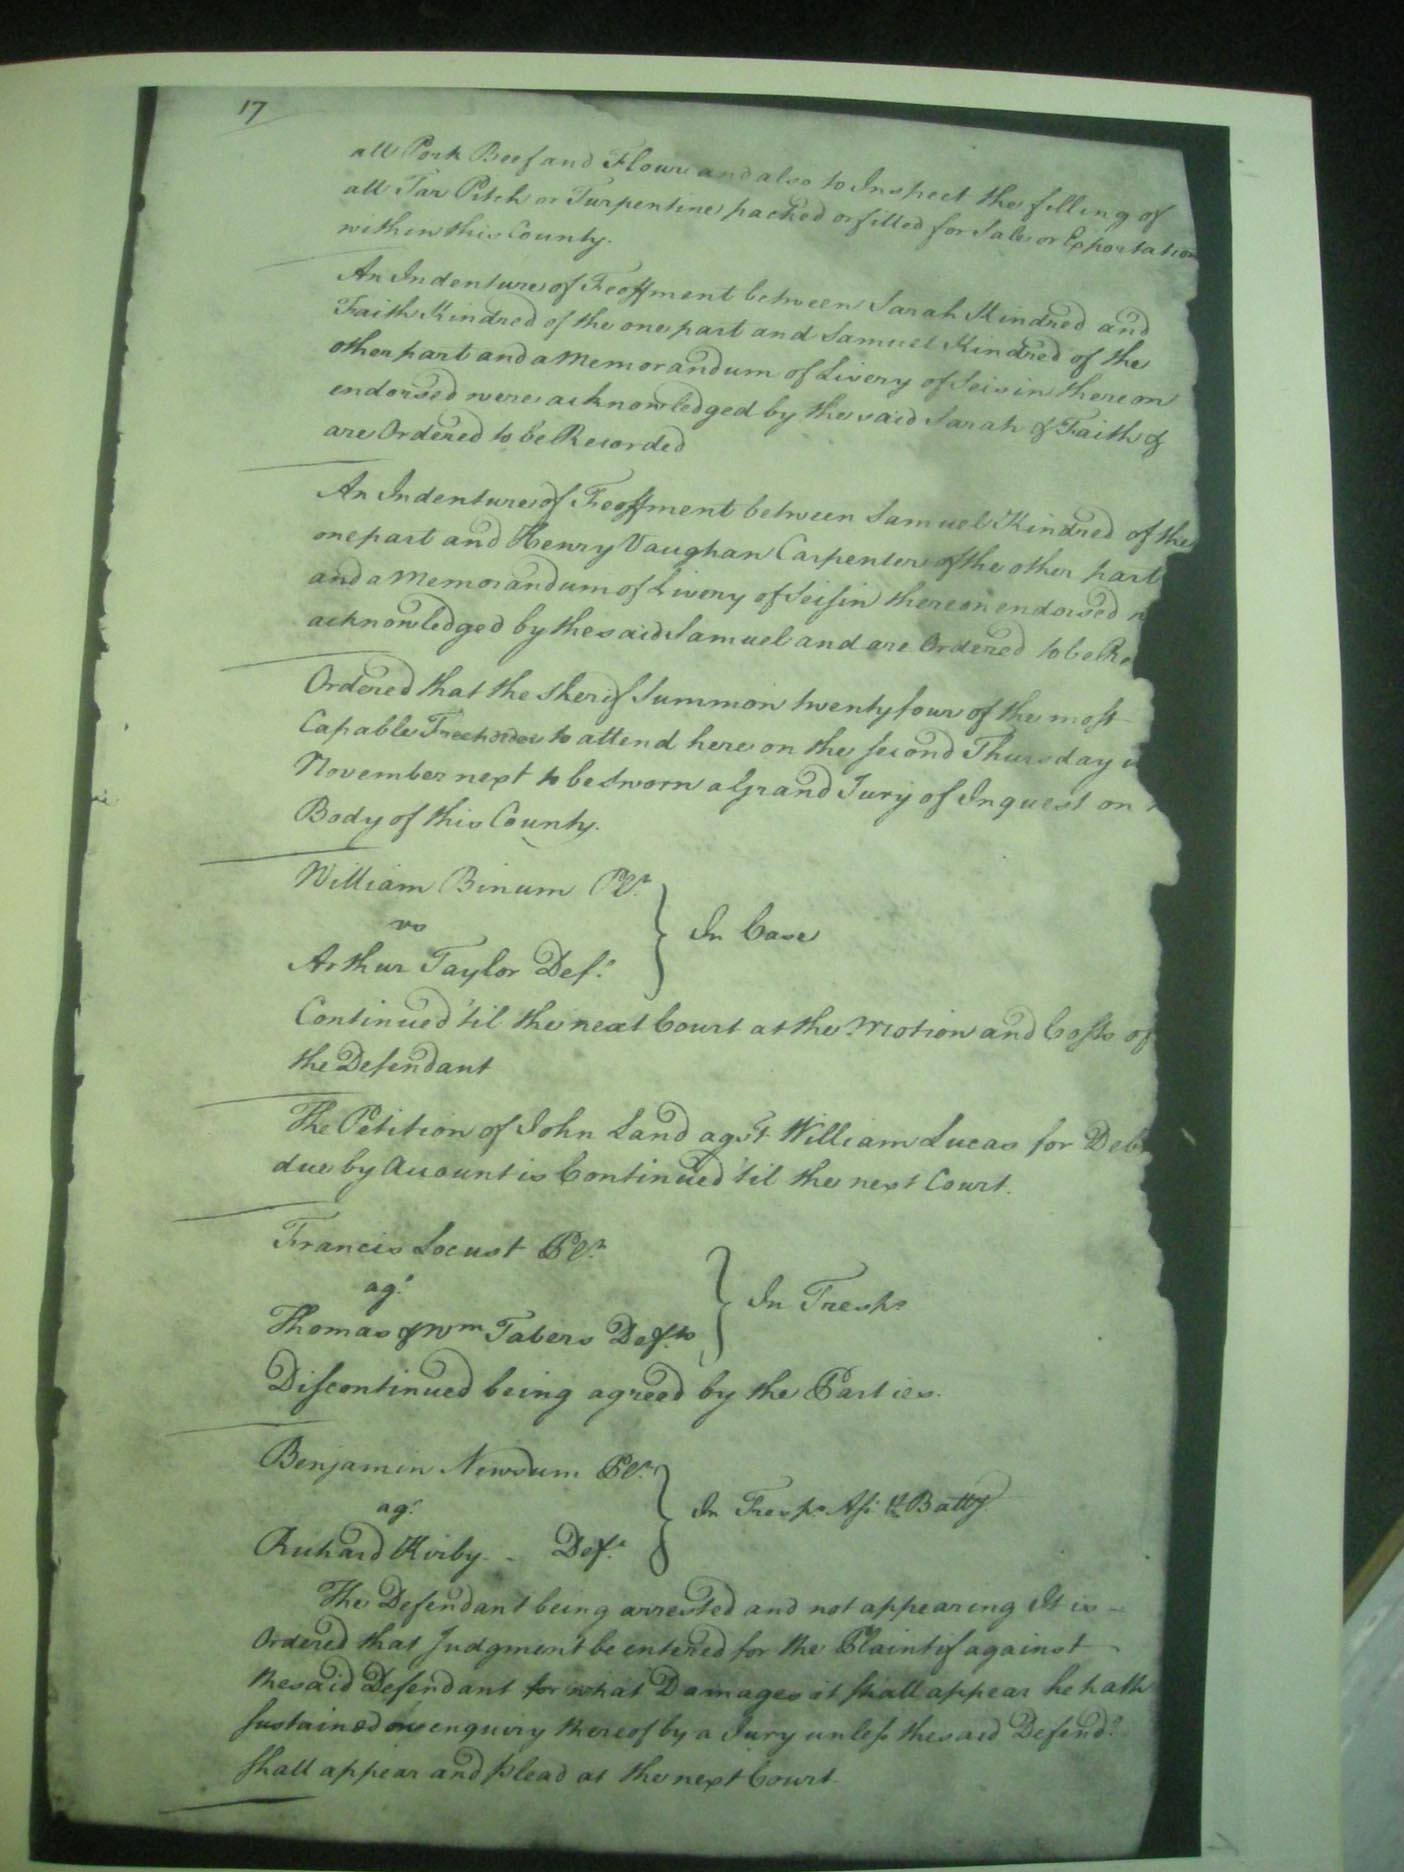 17
all Pork Beef and Flour and also to Inspect the filling of
all Tar Pitch or Turpentine packed or filled for Sale or Exportation
within this County.
An Indenture of Feoffment between Sarah Kindred and
Faith Kindred of the one part and Samuel Kindred of the
other part and a Memorandum of Livery of Seisin thereon
endorsed were acknowledged by the said Sarah & Faith &
are Ordered to be Recorded
An Indenture of Feoffment between Samuel Kindred of the
one part and Henry Vaughan Carpenter of the other part
and a Memorandum of Livery of Seisin thereon endorsed
acknowledged by the said Samuel and are Ordered to be Re
Ordered that the Sherif Summon twenty four of the most
Capable Freeholders to attend here on the second Thursday
November next to be Sworn a Grand Jury of Inquest on
Body of this County.
William Binum Plt
vs
In Case
Arthur Taylor Deft
Continued 'til the next Court at the Motion and Costs of
the Defendant
The Petition of John Land agst William Lucas for Deb
due by Account is Continued 'til the next Court.
Francis Locust Plt
agt
In Tresps
Thomas & Wm Tabers Defts
Discontinued being agreed by the Parties.
Benjamin Newsum Plt
agt
In Tresps Ass lt & Batty
Richard Kirby - Deft
The Defendant being arrested and not appearing It is -
Ordered that Judgment be entered for the Plaintif against
the said Defendant for what Damages it shall appear he hath
sustained on enquiry thereof by a Jury unless the said Defendt
shall appear and plead at the next Court